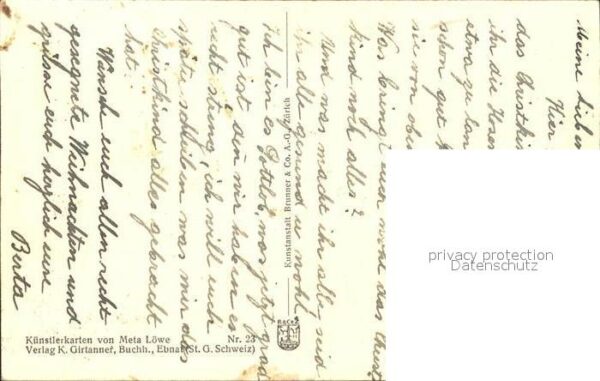 Meine Lieben
Hier
das Christki
ihr die Hosen
etwa zu lan
schon gut
sie von obe
Was bringt euer wohl das Christ
kind noch alles?
Und was macht ihr alle, seid
ihr alle gesund u. wohl,
Ich bin es Gottlob, was jetzt grad
gut ist, denn wir haben es
recht streng, ich will euch
später schreiben was mir das
Christkind alles gebracht
hat.
Wünsche euch allen recht
gesegnete Weihnachten und
grüsse euch herzlich eure
Berta
Kunstanstalt Brunner & Co. A.-G. Zürich
BRCOZ
Künstlerkarten von Meta Löwe Nr. 23
Verlag K. Girtanner, Buchh., Ebnat (St. G. Schweiz)
privacy protection
Datenschutz